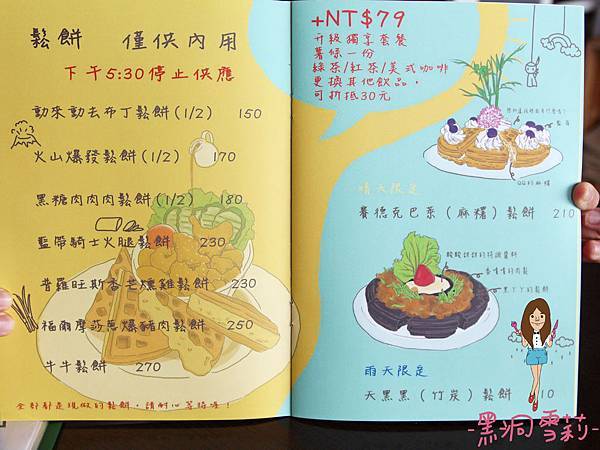 鬆餅 僅供內用
下午5:30停止供應
動來動去布丁鬆餅(1/2) 150
火山爆發鬆餅(1/2) 170
黑糖肉肉肉鬆餅(1/2) 180
藍帶騎士火腿鬆餅 230
普羅旺斯香芒燻雞鬆餅 230
福爾摩莎蔥爆豬肉鬆餅 250
牛牛鬆餅 270
全部都是現做的鬆餅，請耐心等待喔！
+NT$79
升級獨享套餐
薯條一份
綠茶/紅茶/美式咖啡
更換其他飲品，
可折抵30元
藍莓
QQ的麻糬
晴天限定
賽德克巴萊(麻糬)鬆餅 210
酸酸甜甜的特調醬料
香噴噴的肉鬆
黑ㄚㄚ的鬆餅
雨天限定
天黑黑(竹炭)鬆餅 10
-黑洞雪莉-